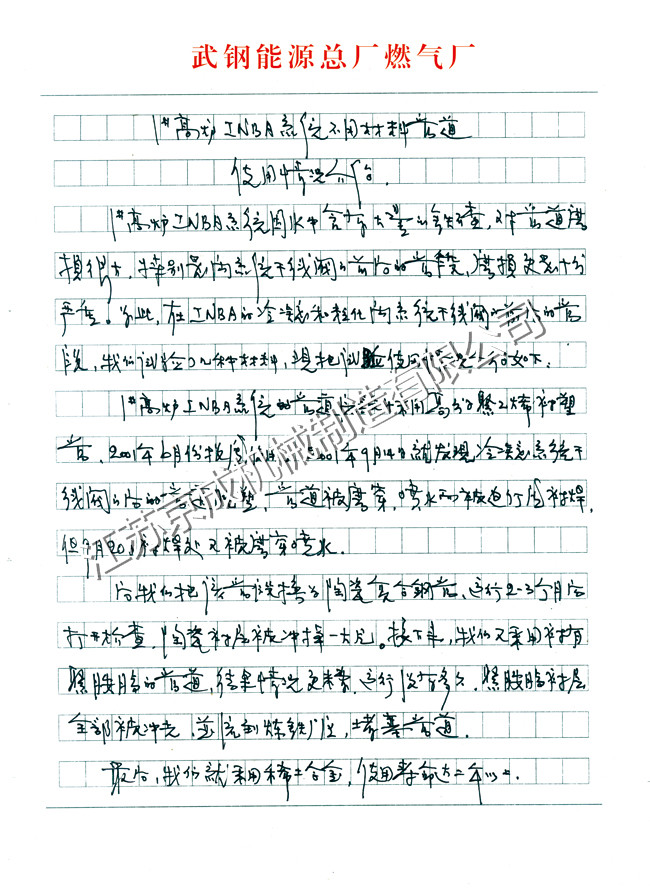 武钢能源总厂燃气厂
1#高炉INBA系统不同材料管道
使用情况介绍.
1#高炉INBA系统因水中含有大量的铁渣,对管道磨
损很大,特别是两系统干线阀门前后的管段,磨损更是十分
严重。为此,在INBA的冷凝和粒化两系统干线阀门前后的管
段,我们试验了几种材料,现把试验使用情况介绍如下:
1#高炉INBA系统的管道 采用高分子聚乙烯衬塑
管,2001年6月份投 2001年9月14日就发现冷凝系统干
线阀门后的管道 ,管道被磨穿,喷水而被迫打 补焊,
但9月20日补焊处又被磨穿喷水.
后我们把该管段换为陶瓷复合钢管,运行2-3个月后
打开检查,陶瓷衬层被冲掉一大片。接下来,我们又采用衬有
聚胺脂的管道,结果情况更糟,运行没有多久,聚胺脂衬层
全部被冲走,并流到炼铁厂 ,堵塞管道.
最后,我们就采用稀土合金,使用寿命达二年以上.
江苏京成机械制造有限公司